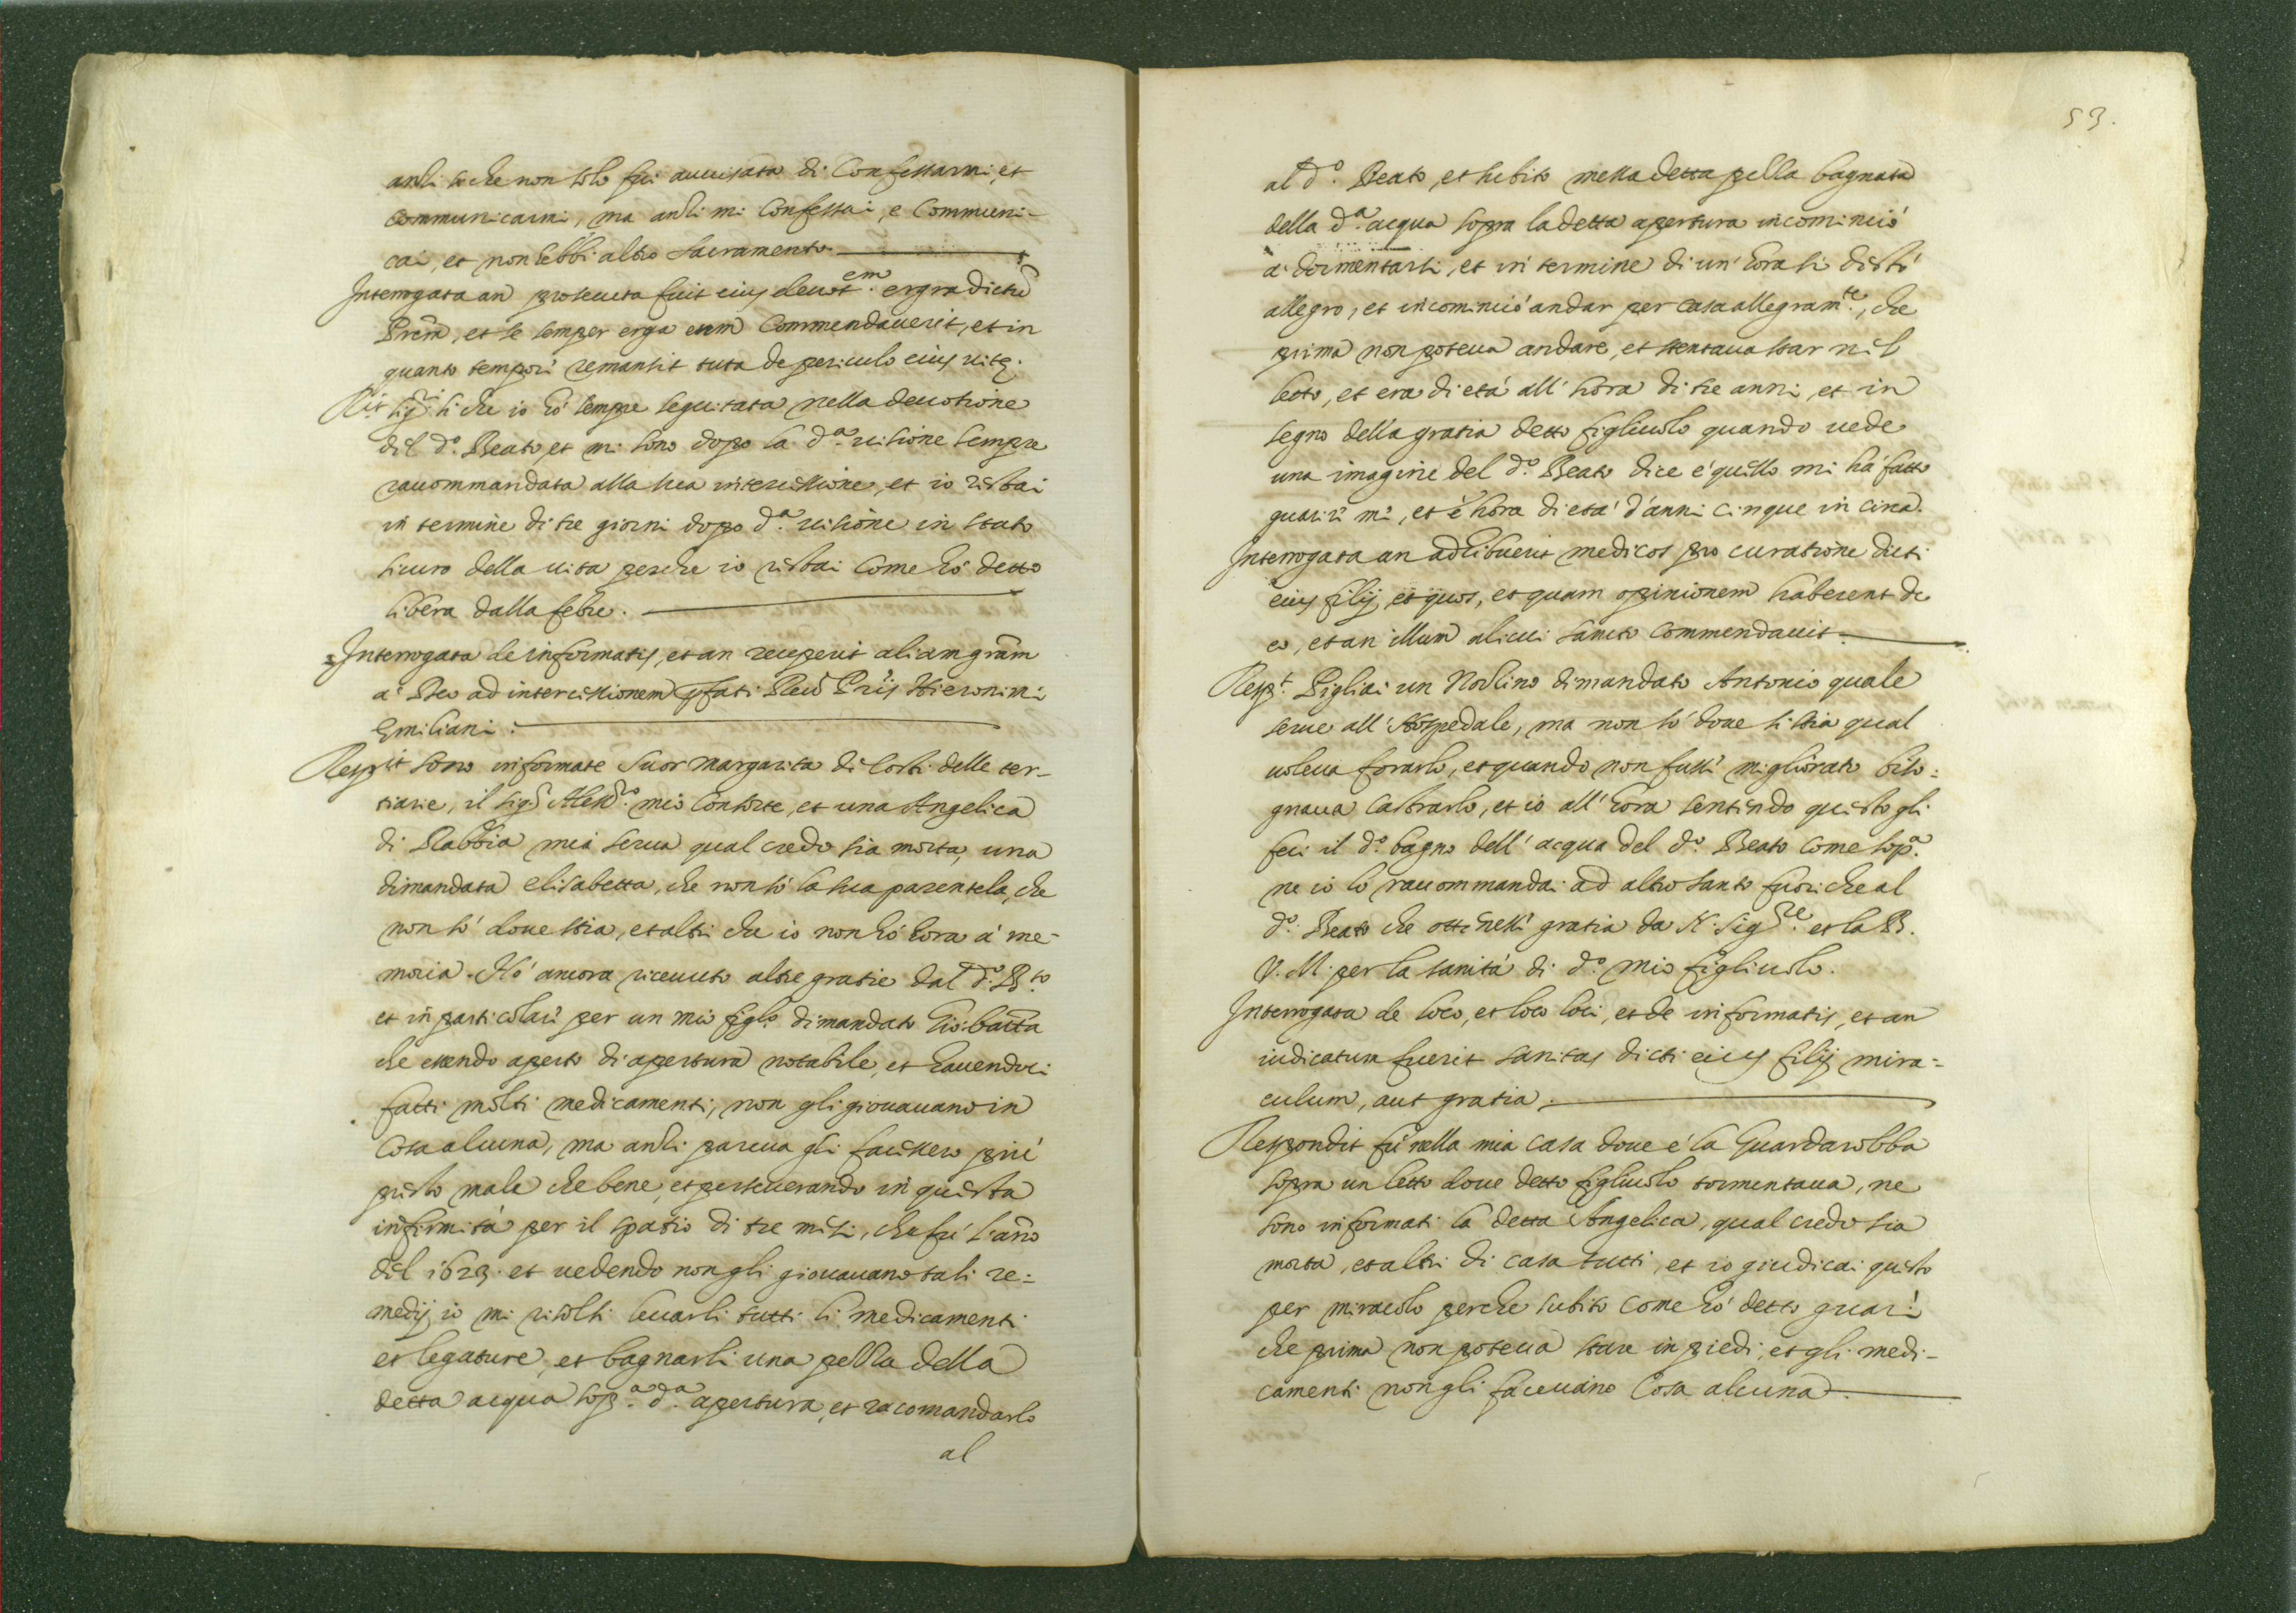 anzi so che non solo fui auuisata di Confessarmi, et
communicarmi, ma anzi mi Confessai, e Communi-
cai, et non hebbi altro sacramento
Interrogata an prosecuta fuit eius deuot.em erga dictũ
Prẽm, et se semper erga eum Commendauerit, et in
quanto tempore remansit tuta de periculo eius uitę.
R.it sig.r sì che io hò sempre seguitata nella deuotione
del d.º Beato, et mi sono dopo la d.a uisione sempre
raccommandata alla sua intercessione, et io restai
in termine di tre giorni dopo d.a uisione in stato
sicuro della uita perche io restai come hò detto
libera dalla febre.
Interrogata de informatis, et an receperit aliam grãm
a Deo ad intercessionem pfati Reu.di Pris Hieronimi
Emiliani.
Resp.it sono informate Suor Margarita di Costi delle ter-
tiarie, il sig.r Aless.ro mio Consorte, et una Angelica
di Rabbia mia serua qual credo sia morta, una
dimandata Elisabetta, che non sò la sua parentela, che
non sò doue stia, et altri che io non hò hora à me-
moria. Hò ancora riceuuto altre gratie dal d.º B.to
et in particolare per un mio figl.º dimandato Gio: batta
che essendo aperto di apertura notabile, et hauendoci
fatti molti medicamenti, non gli giouauano in
Cosa alcuna, ma anzi pareua gli facessero più
presto male che bene, et perseuerando in questa
infirmità per il spatio di tre mesi, che fù l'año
del 1623. et uedendo non gli giouauano tali re=
medij io mi risolsi leuarli tutti li medicamenti
et legature, et bagnarli una pezza della
detta acqua sop.a d.a apertura, et racomandarlo
al
53.
al d.º Beato, et subito messa detta pezza bagnata
della d.a acqua sopra la detta apertura incominciò
à dormentarsi, et in termine di un' hora si destò
allegro, et incominciò andar per casa allegram.te, che
prima non poteua andare, et stentaua star nel
letto, et era di età all' hora di tre anni, et in
segno della gratia detto figliuolo quando uede
una imagine del d.º Beato dice è quello mi hà fatto
guarire mi, et è hora di età d'anni cinque in circa.
Interrogata an adhibuerit medicos pro curatione dicti
eius filij, et quos, et quam opinionem haberent de
eo, et an illum alicui sancto commendauit.
Resp.t Pigliai un Norsino dimandato Antonio quale
serue all' Hospedale, ma non sò doue si stia qual
uoleua forarlo, et quando non fusse migliorato biso=
gnaua castrarlo, et io all' hora sentendo questo gli
feci il d.º bagno dell' acqua del d.º Beato come sop.a
ne io lo raccommandai ad altro santo fuori che al
d.º Beato che ottenesse gratia da N. Sig.re et la B.
V. M. per la sanità di d.º mio figliuolo.
Interrogata de loco, et loco loci, et de informatis, et an
iudicatum fuerit sanitas dicti eius filij mira=
culum, aut gratia.
Respondit fù nella mia casa doue è la Guardarobba
sopra un letto doue detto figliuolo tormentaua, ne
sono informati la detta Angelica, qual credo sia
morta, et altri di casa tutti, et io giudicai questo
per miracolo perche subito come hò detto guarì
che prima non poteua stare in piedi, et gli medi-
camenti non gli faceuano Cosa alcuna.